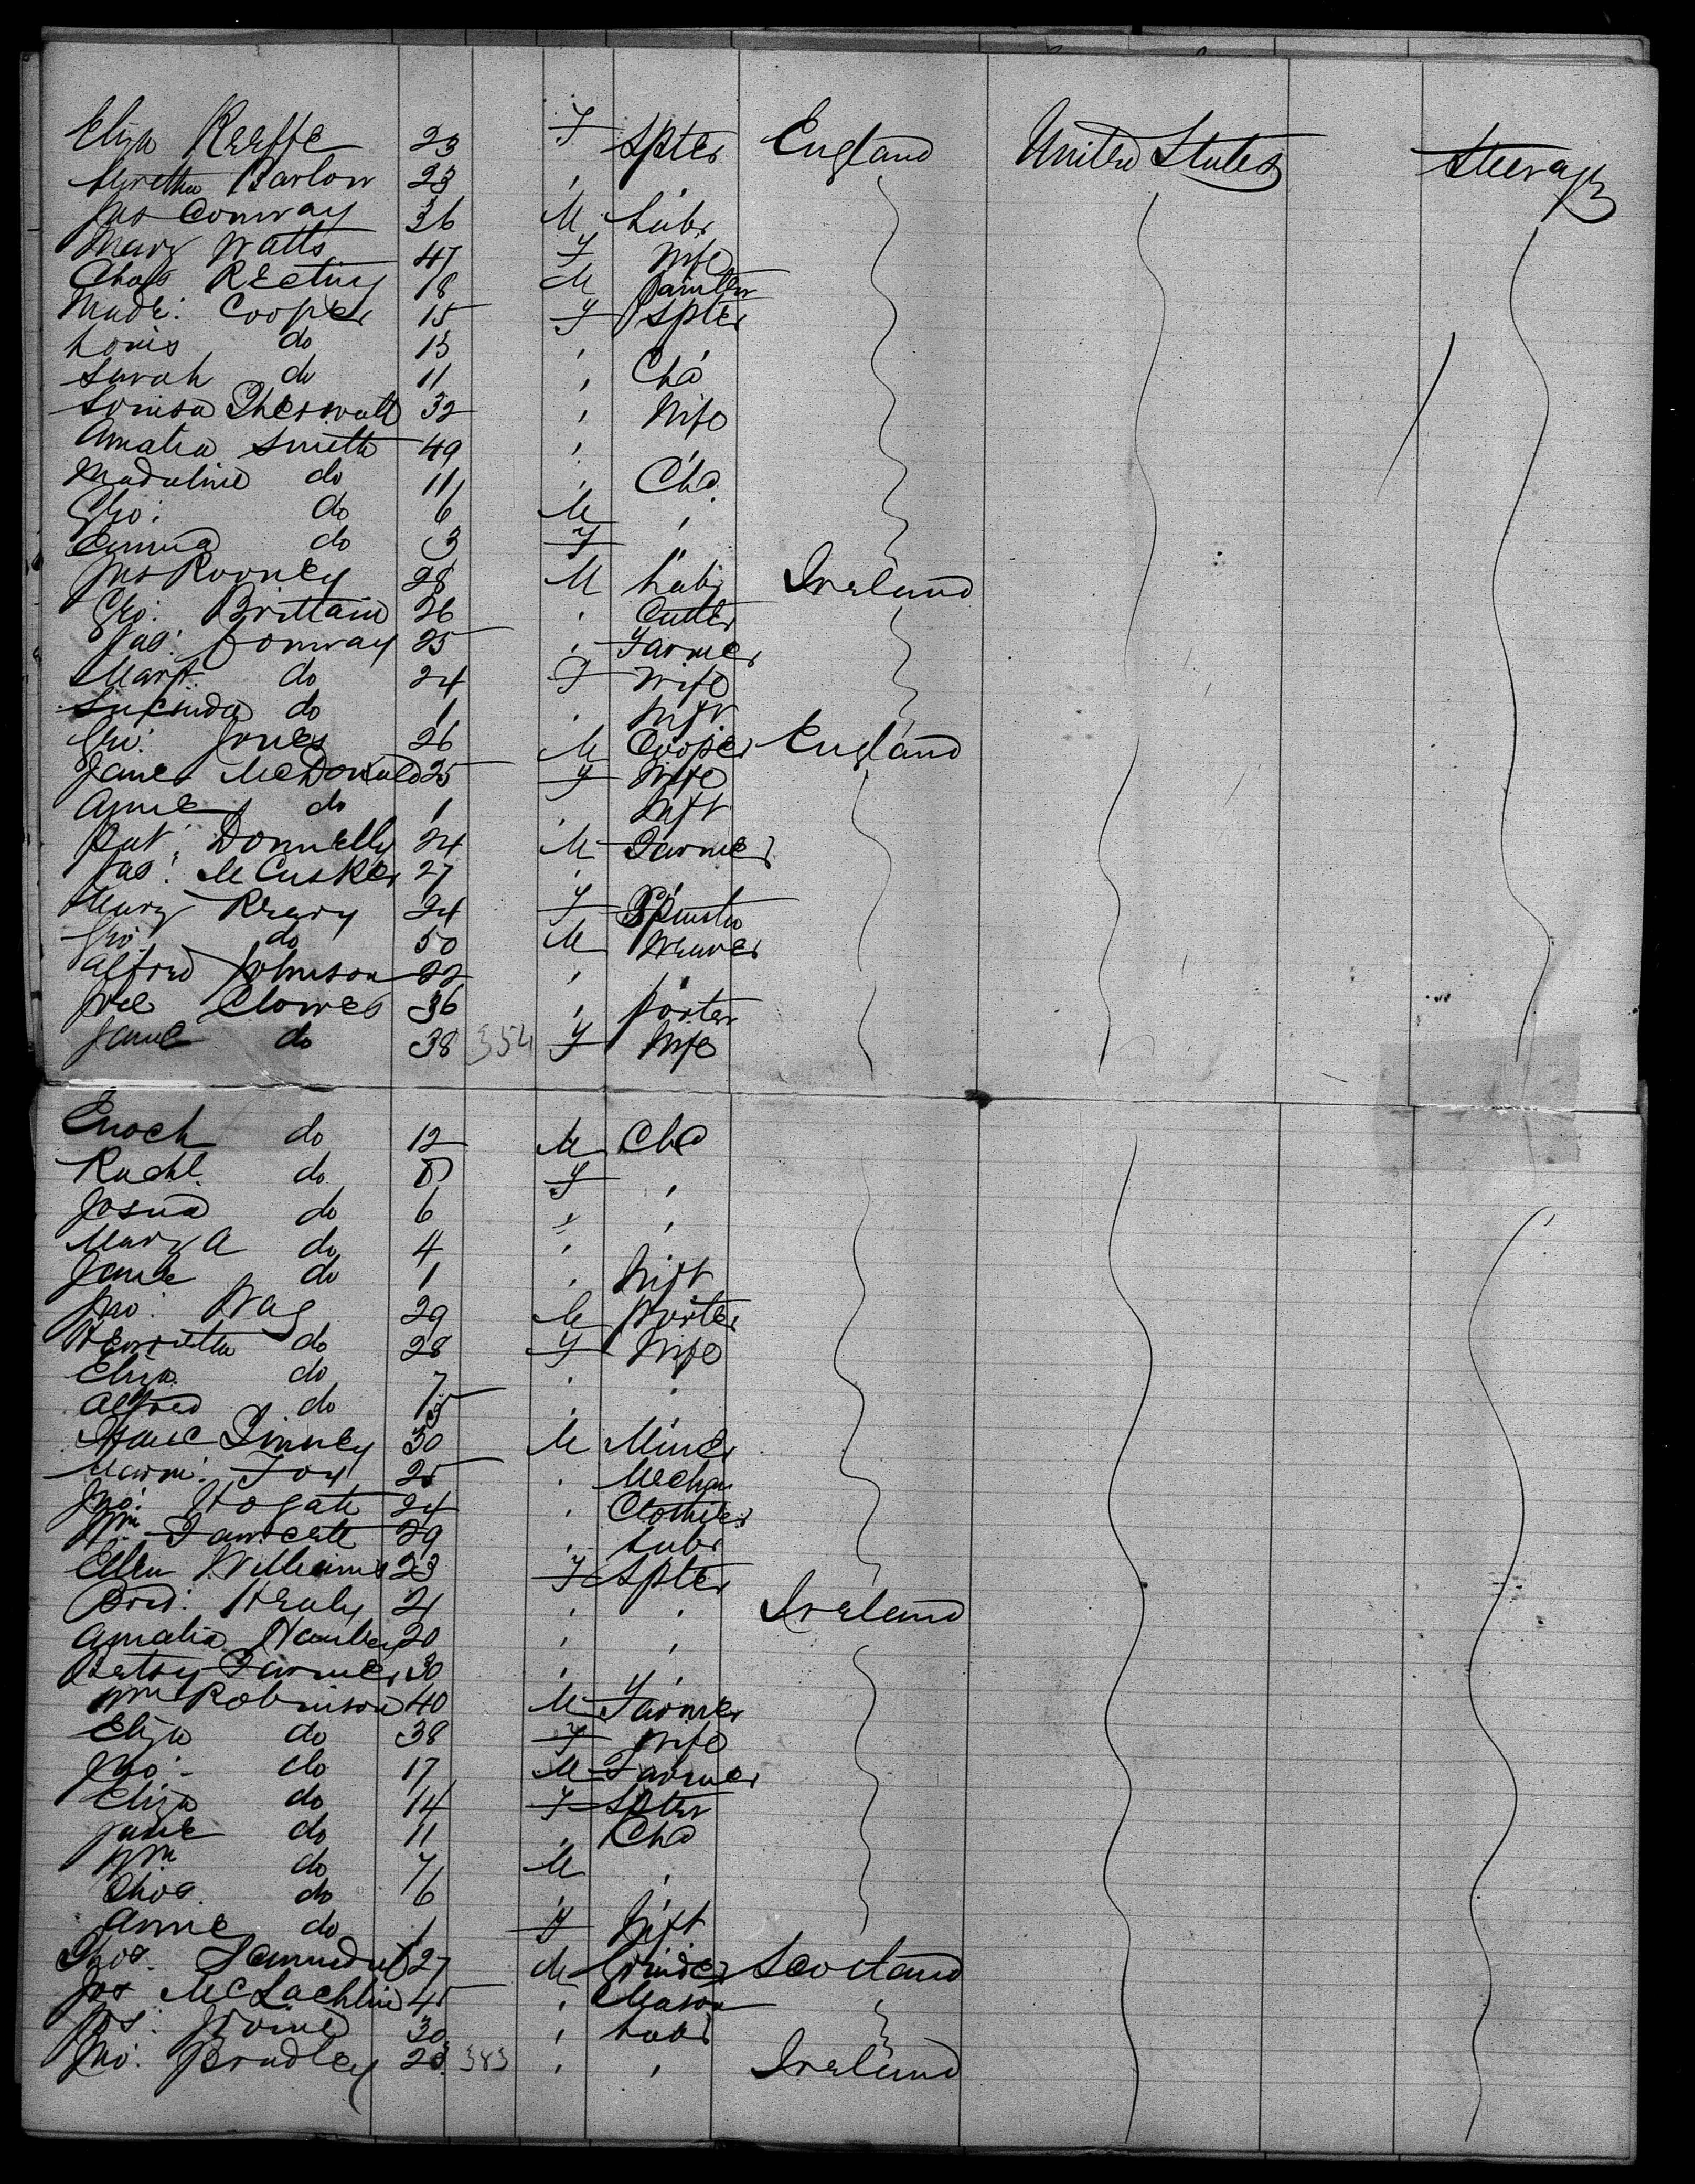 Eliza Keeffe 23 F Spter England United States Steerage
Barlow 23 "
Jas Conway 36 M Labr
Mary Watts 47 F Wife
Chas Keeting 18 M Painter
Made: Cooper 15 F Spter
Louis do 13 " "
Sarah do 11 " Chd
Louisa 32 " Wife
Amalia Smith 49 " "
Madaline do 11 " Chd
Geo: do 6 M "
Emma do 3 F "
Jas Rooney 28 M Labr Ireland
Geo: Brittain 26 " Cutler
Jas: Conway 25 " Farmer
Margt. do 24 F Wife
Lucinda do 1 " Inft
Geo: Jones 26 M Cooper England
Jane McDonald 25 F Wife
Anne do 1 " Inft
Pat: Donnelly 24 M Farmer
Jas: McCusker 27 " "
Mary 24 F Spinster
Geo: do 50 M Weaver
Alfred Johnson 22 " "
Joel Clowes 36 " Porter
Jane do 38 354 F Wife
Enoch do 12 M Chd
Rachl. do 8 F "
Josua do 6 " "
Mary A do 4 " "
Jane do 1 " Inft
Jno: Wag 29 M Porter
Henrietta do 28 F Wife
Eliza do 7 " "
Alfred do " "
Isaac 30 M Miner
Fox 25 " Mechan
Jno: Hogate 24 " Clothier
Wm Fawcett 29 " Labr
Ellen Williams 23 F Spter
Brid: Healy 21 " " Ireland
Amalia 20 " "
Betsy Farmer 30 " "
Wm Robinson 40 M Farmer
Eliza do 38 F Wife
Jno: do 17 M Farmer
Eliza do 14 F Spter
Jane do 11 " Chd
Wm do 7 M "
Thos. do 6 " "
Anne do 1 F Inft
Thos. 27 M Grinder Scotland
Jas McLachlin 45 " Mason
Jas: 30 " Labr
Jno: Bradley 23 383 " " Ireland